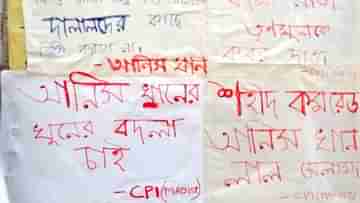 দালালদের কাছে
না।
- আনিস খান
তৃণমূলকে
আনিস খানের
খুনের বদলা
চাই
- CPI (MAOIST)
শহীদ কমরেড
আনিস খান
লাল সেলাম